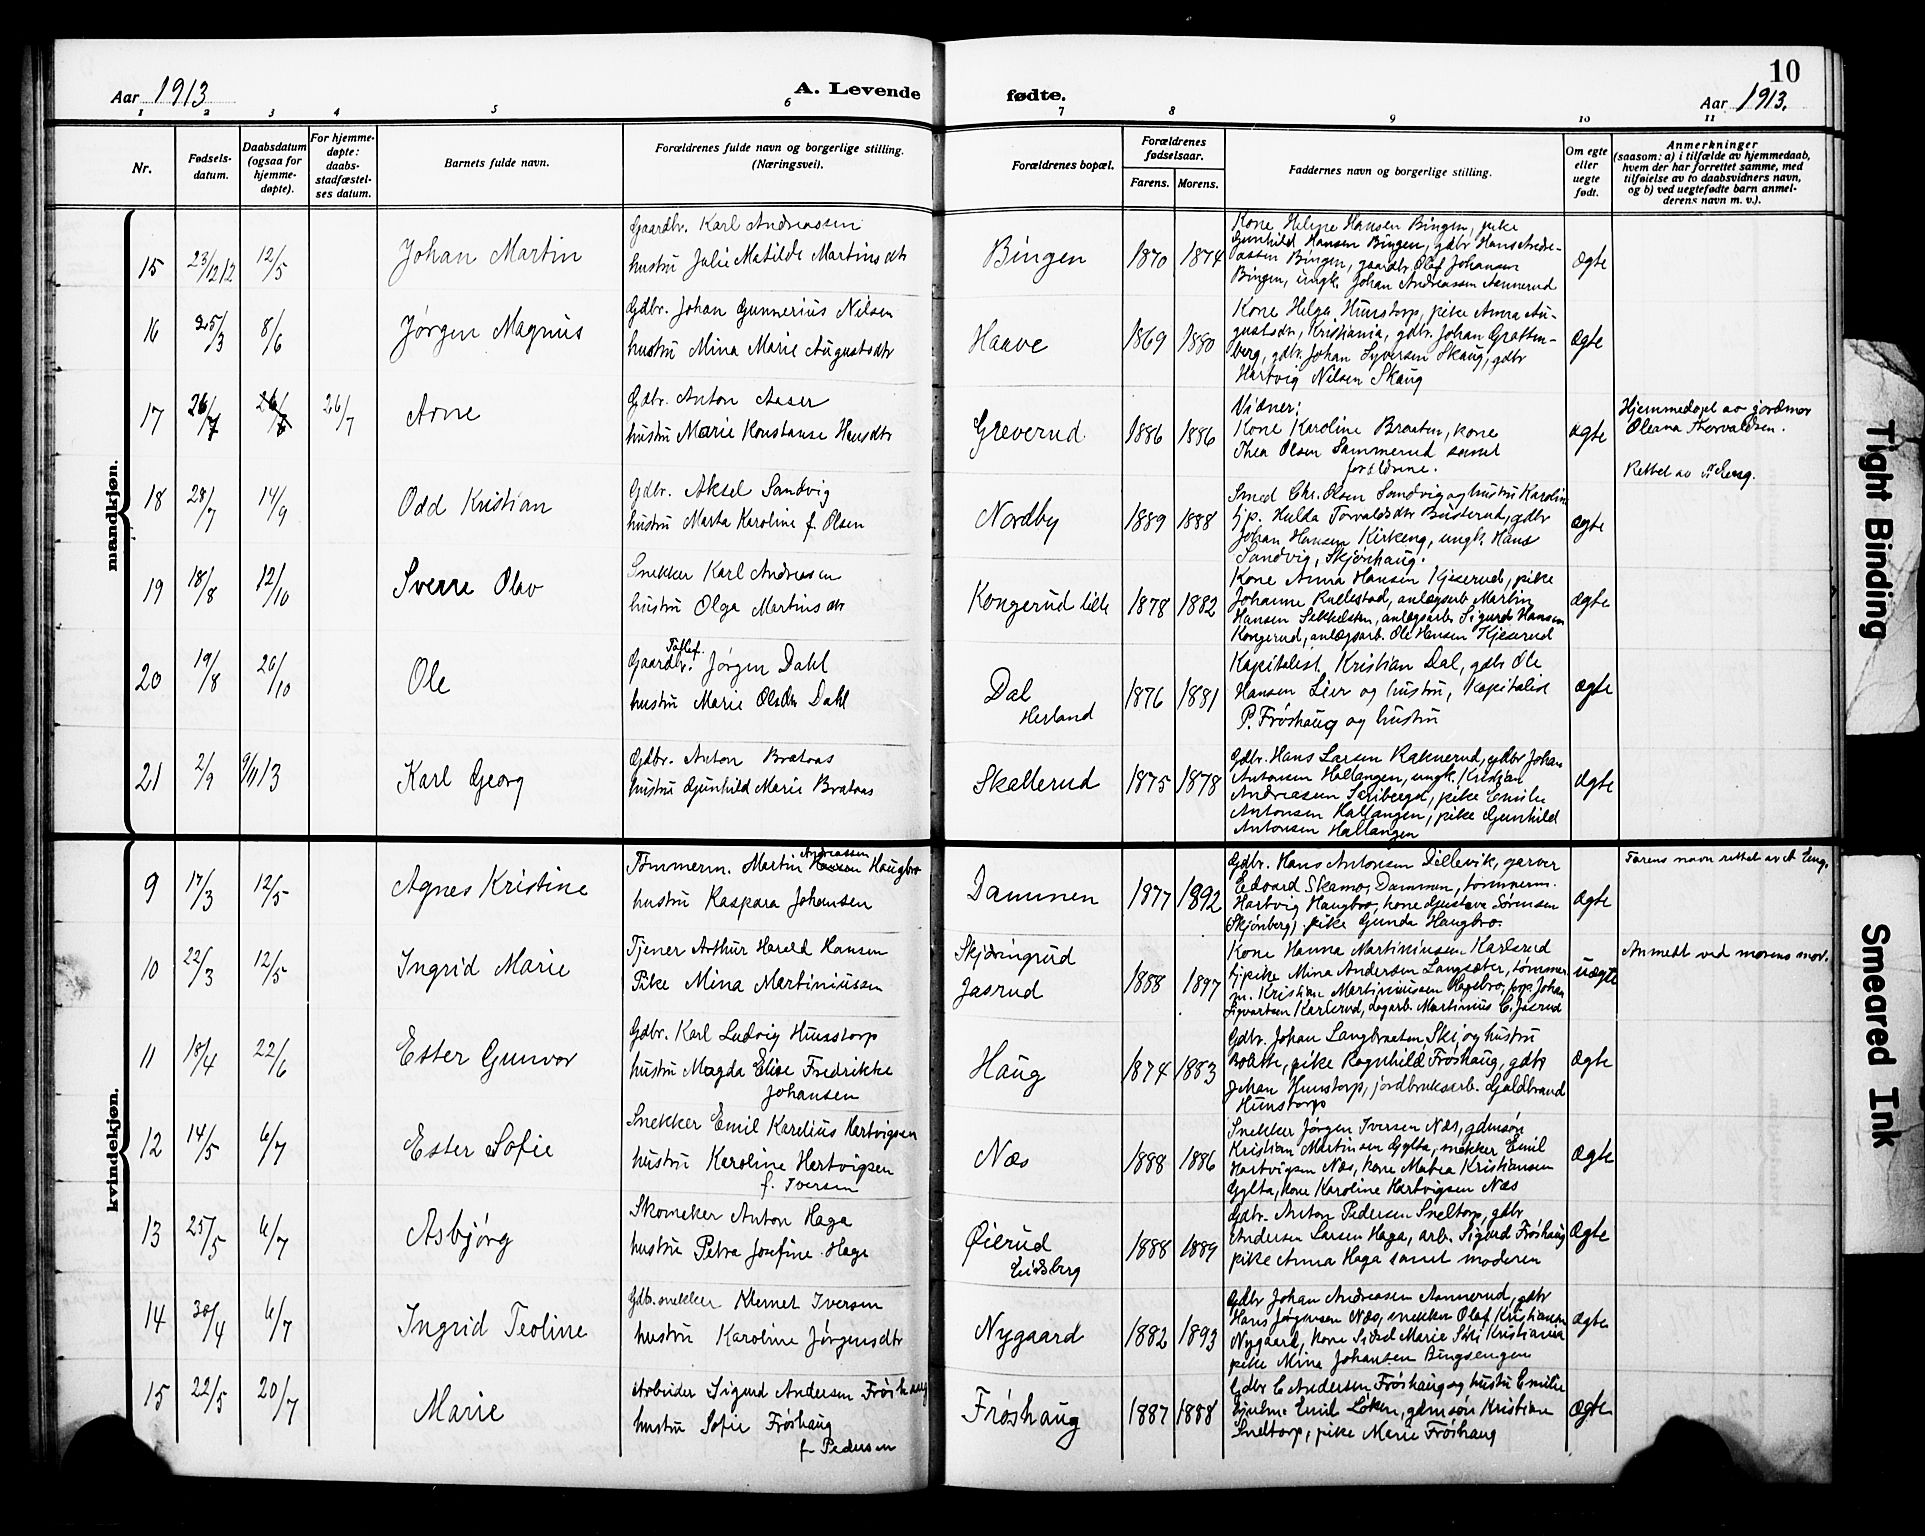 Aar 1913
A. Levende
fødte.
10
Aar 1913.
1 2 3 4 5 6 7 8 9 10 11
Nr.
Fødsels-
datum.
Daabsdatum
(ogsaa for
hjemme-
døpte).
For hjemme-
døpte:
daabs-
stadfæstel-
ses datum.
Barnets fulde navn.
Forældrenes fulde navn og borgerlige stilling.
(Næringsvei).
Forældrenes bopæl.
Forældrenes
fødselsaar.
Farens. Morens.
Faddernes navn og borgerlige stilling.
Om egte
eller
uegte
født.
Anmerkninger
(saasom: a) i tilfælde av hjemmedaab,
hvem der har forrettet samme, med
tilføielse av to daabsvidners navn,
og b) ved uegtefødte barn anmel-
derens navn m. v.).
mandkjøn.
15 23/12 12 12/5 Johan Martin
Gaardbr. Karl Andreassen
hustru Julie Matilde Martinsdtr
Bingen 1870 1874
Kone Helene Hansen Bingen, pike
Gunhild Hansen Bingen, gdbr Hans Andre-
assen Bingen, gaardbr. Olaf Johansen
Bingen, ungk. Johan Andreassen Aannerud
ægte
16 25/3 8/6 Jørgen Magnus
Gdbr. Johan Gunnerius Nilsen
hustru Mina Marie Augustsdtr
Haave 1869 1880
Kone Helga Hunstorp, pike Anna Au-
gustsdtr, Kristiania, gdbr. Johan Graffen-
berg, gdbr. Johan Syversen Skaug, gdbr
Hartvig Nilsen Skaug
ægte
17 26/7 26/7 Arne
Gdbr. Anton Aaser
hustru Marie Konstanse Hansdtr
Greverud 1886 1886
Vidner:
Kone Karoline Braaten, kone
Thea Olsen Sammerud samt
forældrene.
ægte
Hjemmedøpt av jordmor
Oleana Thorvaldsen.
Rettet av A Eng.
18 28/7 14/9 Odd Kristian
Gdbr. Aksel Sandvig
hustru Marta Karoline f. Olsen
Nordby 1889 1888
Smed Chr. Olsen Sandvig og hustru Karolin
tjp. Hulda Torvaldsdtr Busterud, gdbr
Johan Hansen Kirkeng, ungk. Hans
Sandvig, Skjønhaug.
ægte
19 18/8 12/10 Sverre Olav
Snekker Karl Andreasen
hustru Olga Martinsdtr
Kongerud lille 1878 1882
Kone Anna Hansen Kjeserud, pike
Johanne Rullestad, anlægsarb Martin
Hansen Sekkelsten, anlægsarb. Sigurd Hansen
Kongerud, anlægsarb. Ole Hansen Kjeserud
ægte
20 19/8 26/10 Ole
Gaardbr. Jørgen Dahl
hustru Marie Olsdtr Dahl
Dal
Herland
1876 1881
Kapitalist Kristian Dal, gdbr Ole
Hansen Lier og hustru, Kapitalist
P. Frøshaug og hustru
ægte
21 2/9 9/11 13 Karl Georg
Gdbr. Anton Brataas
hustru Gunhild Marie Brataas
Skallerud 1875 1878
Gdbr. Hans Larsen Raknerud, gdbr Johan
Antonsen Hallangen, ungk. Kristian
Andreasen, pike Emilie
Antonsen Hallangen, pike Gunhild
Antonsen Hallangen
ægte
kvindekjøn.
9 17/3 12/5 Agnes Kristine
Andreassen
Tømmerm. Martin Hansen Haugbro
hustru Kaspara Johansen
Dammen 1877 1892
Gdbr. Hans Antonsen Dillevik, garver
Edvard Skamo, Dammen, tømmerm.
Hartvig Haugbro, kone Gustava Sørensen
Skjønberg, pike Gunda Haugbro.
ægte
Farens navn rettet av A Eng.
10 22/3 12/5 Ingrid Marie
Tjener Arthur Harald Hansen
Pike Mina Martiniussen
Skjøringrud
Jasrud
1888 1897
Kone Hanna Martiniussen Karlsrud
tj.pike Mina Andersen Langsæter, tømmer
m. Kristian Martiniussen Hagebro, forp. Johan
Sigvartsen Karlsrud, dagarb. Martinius C. Jasrud
uægte
Anmeldt ved morens mor.
11 18/4 22/6 Ester Gunvor
Gdbr. Karl Ludvig Hunstorp
hustru Magda Elise Fredrikke
Johansen
Haug 1874 1883
Gdbr. Johan Langbraaten, Ski, og hustru
Bolette, pike Ragnhild Frøshaug, gdbr
Johan Hunstorp, jordbruksarb. Guldbrand
Hunstorp
ægte
12 14/5 6/7 Ester Sofie
Snekker Emil Karelius Hartvigsen
hustru Karoline Hartvigsen
f. Iversen
Næs 1888 1886
Snekker Jørgen Iversen Næs, gdmsøn
Kristian Martinsen Gylta, snekker Emil
Hartvigsen Næs, kone Matea Kristiansen
Gylta, kone Karoline Hartvigsen Næs
ægte
13 25/5 6/7 Asbjørg
Skomaker Anton Haga
hustru Petra Josefine Haga
Øierud
Eidsberg
1888 1889
Gdbr. Anton Pedersen Sneltorp, gdbr
Andersen Larsen Haga, arb. Sigurd Frøshaug
pike Anna Haga samt moderen
ægte
14 30/4 6/7 Ingrid Teoline
Gdbr. snekker Klemet Iversen
hustru Karoline Jørgensdtr
Nygaard 1882 1893
Gdbr Johan Andreasen Aannerud, gdbr
Hans Jørgensen Næs, snekker Olaf Kristiansen
Nygaard, kone Marie Kristiania
pike Mina Johansen Bingsengen
ægte
15 22/5 20/7 Marie
Arbeider Sigurd Andersen Frøshaug
hustru Sofie Frøshaug
f. Pedersen
Frøshaug 1887 1888
Gdbr C Andersen Frøshaug og hustru Emilie
Emil Løken, gdmsøn Kristian
Sneltorp, pike Marie Frøshaug
ægte
Tight Binding
Smeared Ink